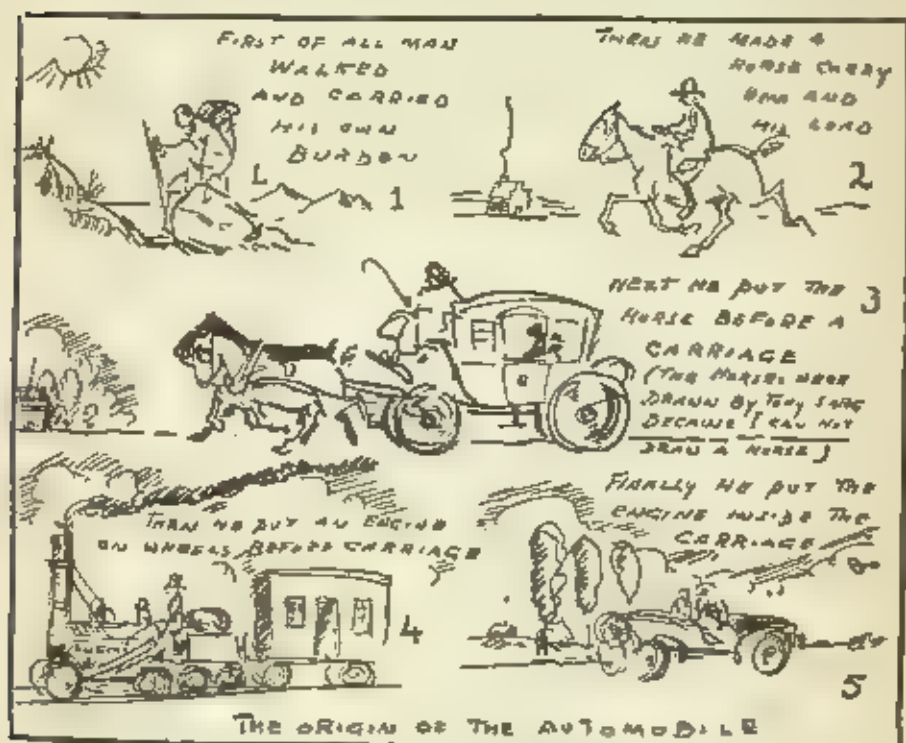 FIRST OF ALL MAN
WALKED
AND CARRIED
HIS OWN
BURDEN
1
THEN HE MADE A
HORSE CARRY
HIM AND
HIS LOAD
2
NEXT HE PUT THE 3
HORSE BEFORE A
CARRIAGE
(THE HORSES WERE
DRAWN BY TONY SARG
BECAUSE I CAN NOT
DRAW A HORSE)
THEN HE PUT AN ENGINE
ON WHEELS BEFORE CARRIAGE
4
FINALLY HE PUT THE
ENGINE INSIDE THE
CARRIAGE
5
THE ORIGIN OF THE AUTOMOBILE